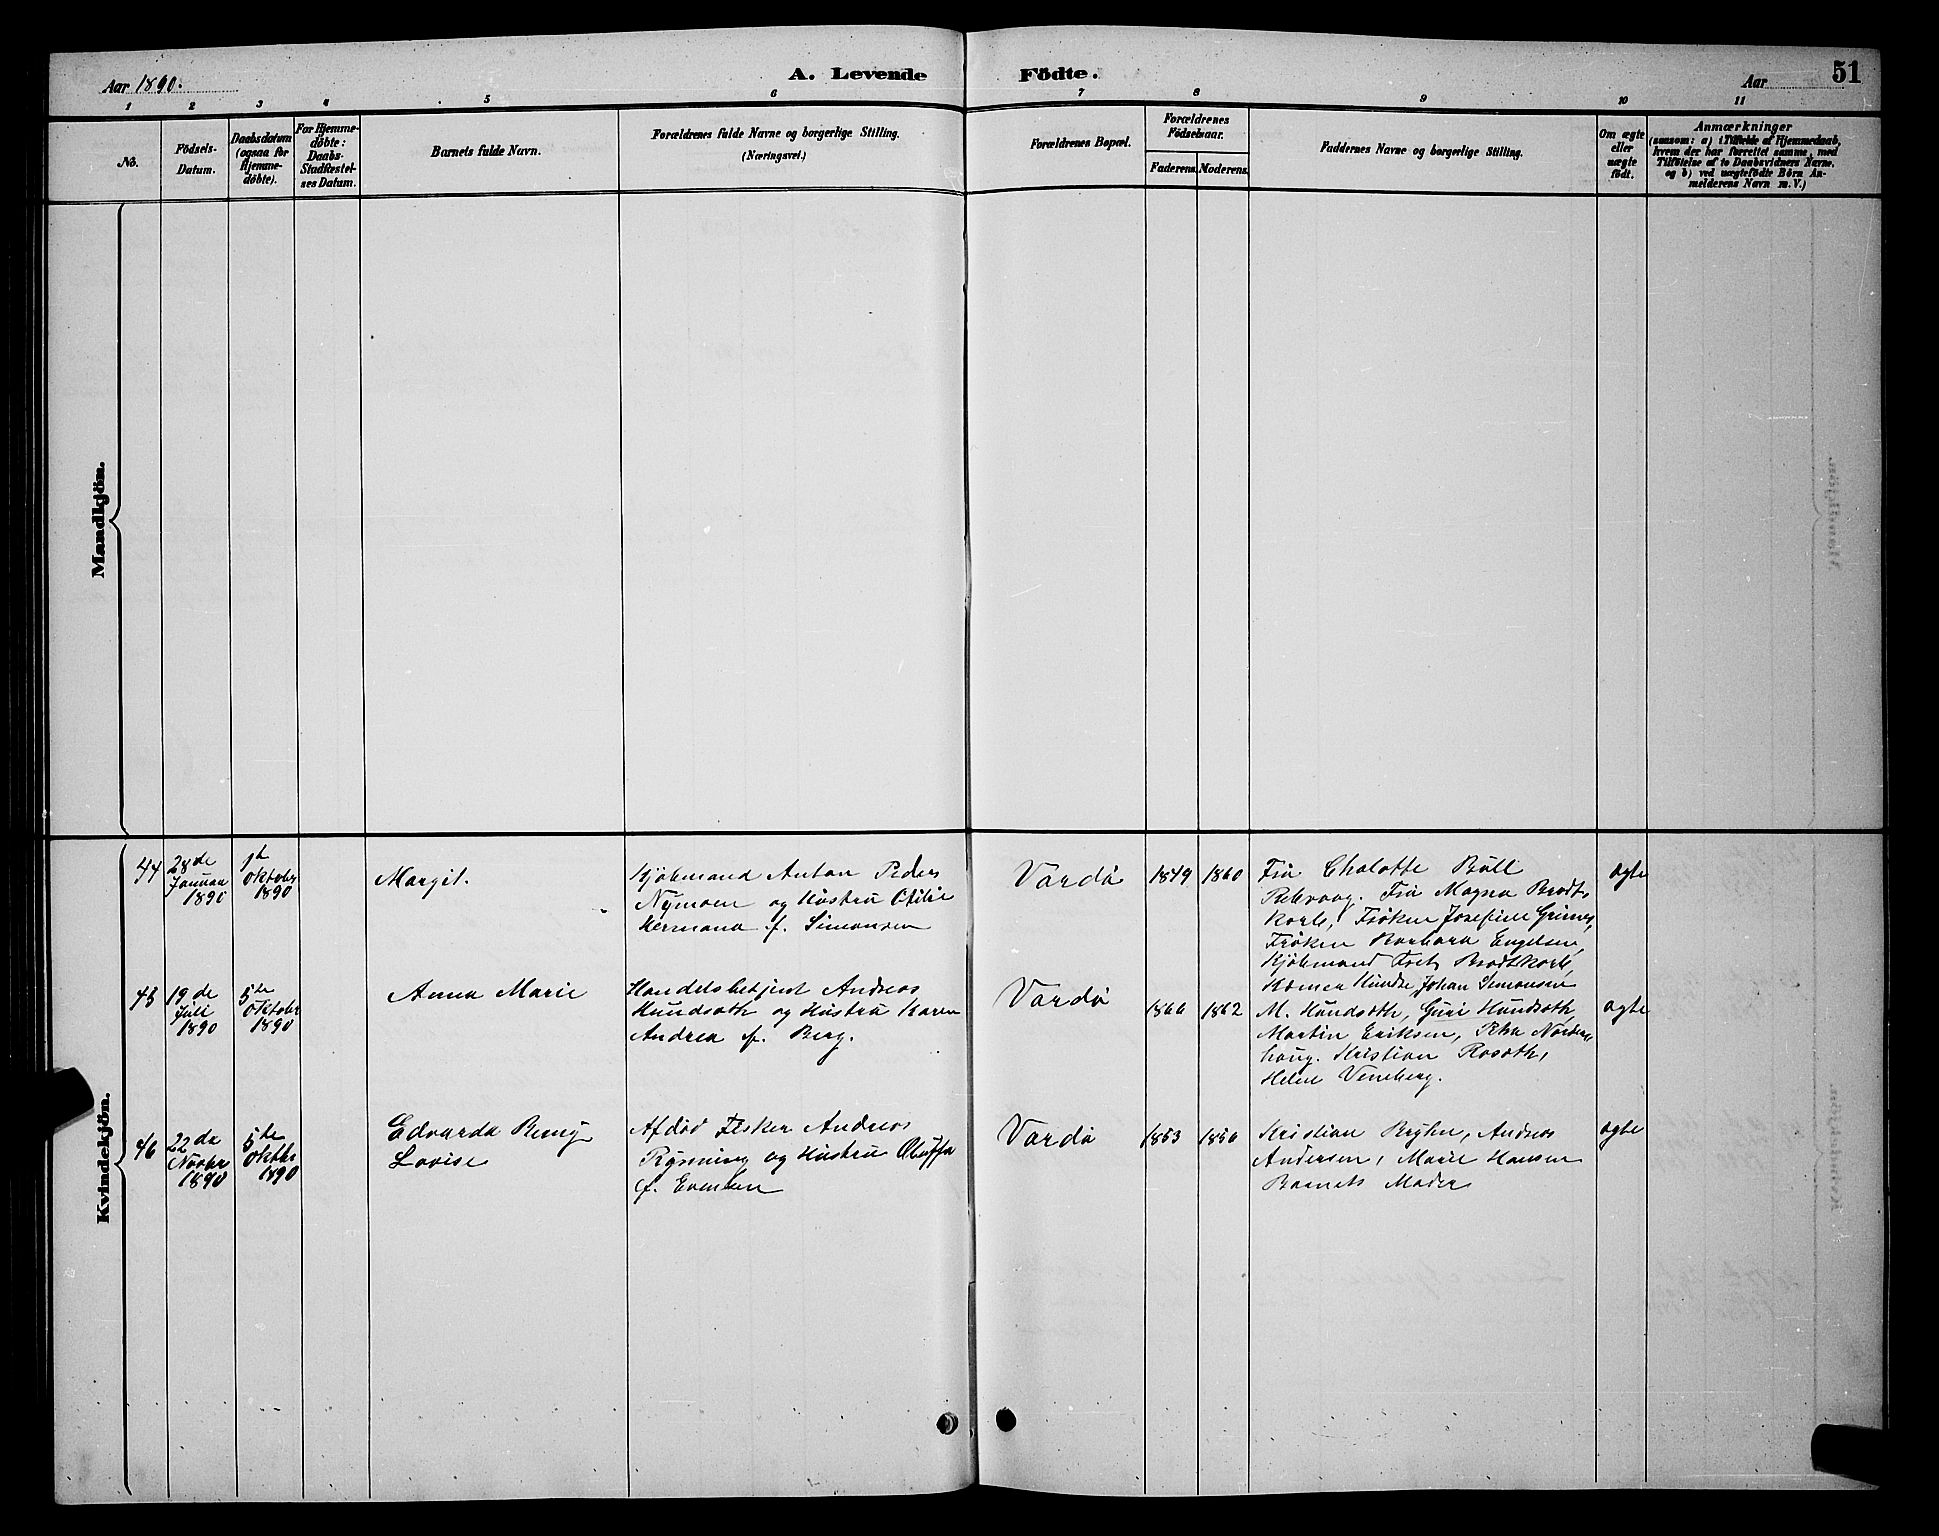 Aar 1890.
A. Levende Födte.
Aar
51
1 2 3 4 5 6 7 8 9 10 11
No.
Födsels-
Datum.
Daabsdatum
(ogsaa for
Hjemme-
döbte).
For Hjemme-
döbte:
Daabs-
Stadfæstel-
ses Datum.
Barnets fulde Navn.
Forældrenes fulde Navne og borgerlige Stilling.
(Næringsvei.)
Forældrenes Bopæl.
Forældrenes
Födselsaar.
Faderens. Moderens.
Faddernes Navne og borgerlige Stilling.
Om ægte
eller
uægte
födt.
Anmærkninger
(saasom: a) i Tilfælde af Hjemmedaab,
hvem der har forrettet samme, med
Tilföielse af to Daabsvidners Navne.
og b) ved uægtefödte Börn An-
melderens Navn m. V.)
Mandkjön.
Kvindekjön.
44
28de
Januar
1890
1ste
Oktober
1890
Margit.
Kjöbmand Anton Peder
Nymoen og Hustru Otilie
Hermana f. Simonsen
Vardö
1849
1860
Fru Chalotte Büll
Fru Magna Brodt-
korb, Fröken Josefine Grimes,
Fröken Barbara Engelsen,
Kjöbmand Fritz Brodtkorb,
Johan Simonsen
ægte
45
19de
Juli
1890
5te
Oktober
1890
Anna Marie
Handelsbetjent Andreas
Hundseth og Hustru Karen
Andrea f. Berg.
Vardö
1866
1862
M. Hundseth, Guri Hundseth,
Martin Eriksen, Norder-
haug. Kristian Roseth,
Helene Veneberg.
ægte
46
22de
Novbr
1890
5te
Oktbr
1890
Edvarda Remy
Lovise
Afdöd Fisker Andreas
Rysning og Hustru Oluffa
f. Evensen
Vardö
1853
1856
Kristian Bryhn, Andreas
Andersen, Marie Hansen
Barnets Moder
ægte